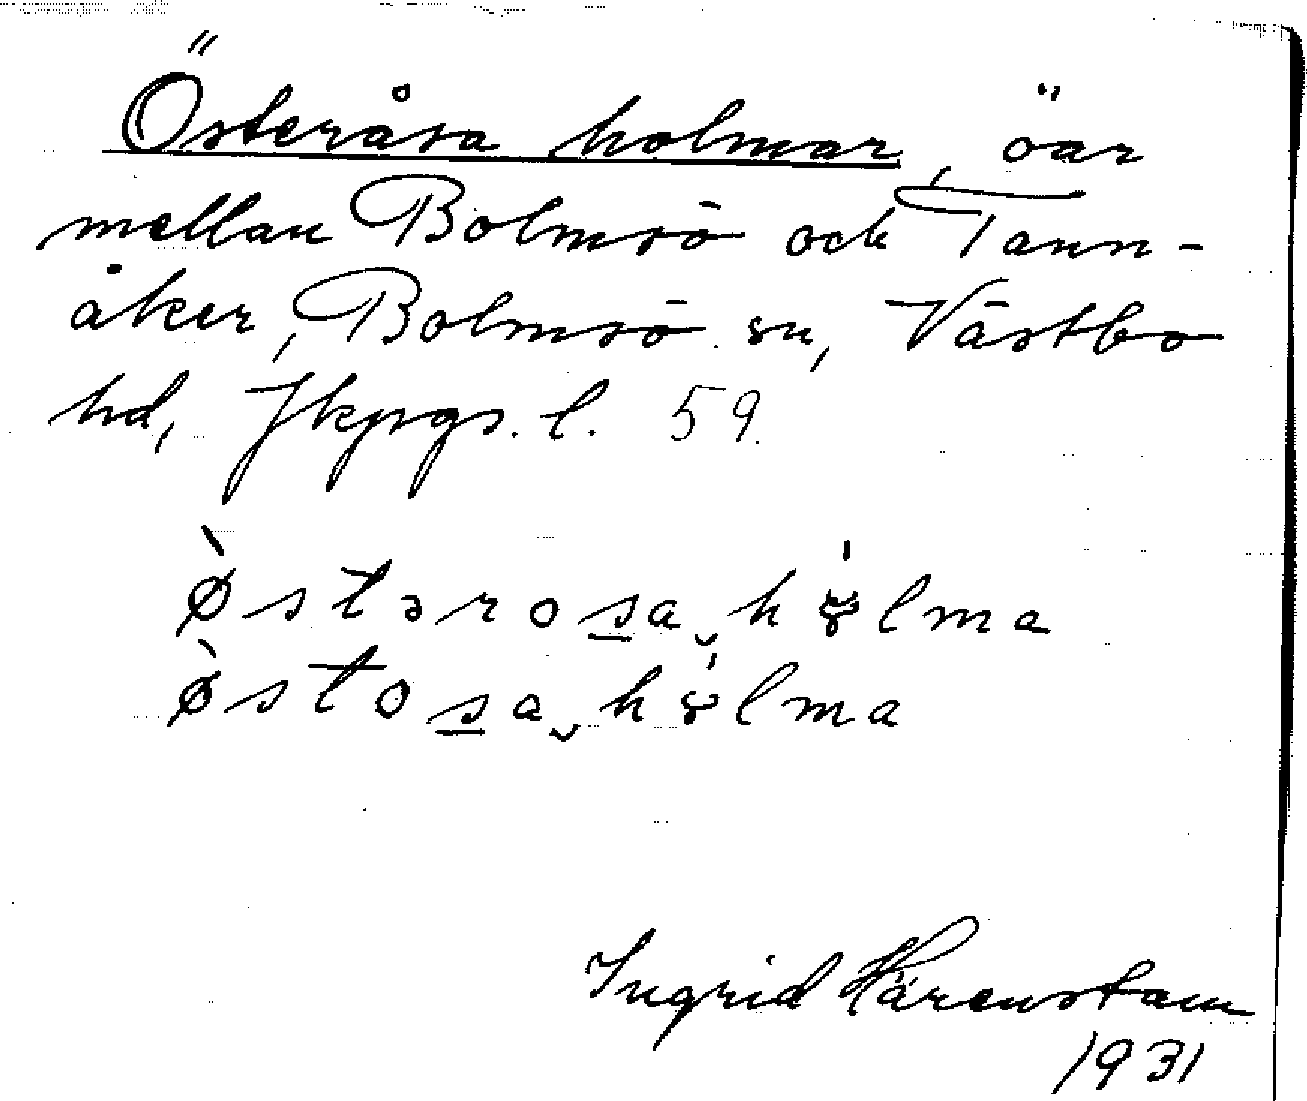 Österåsa holmar, öar
mellan Bolmsö och Tann-
åker, Bolmsö sn, Västbo
hd, Jkpgs. l. 59.
ø̀stərosa̮ hɤ́lma
ø̀stosa̮ hɤ́lma
Ingrid Härenstam
1931